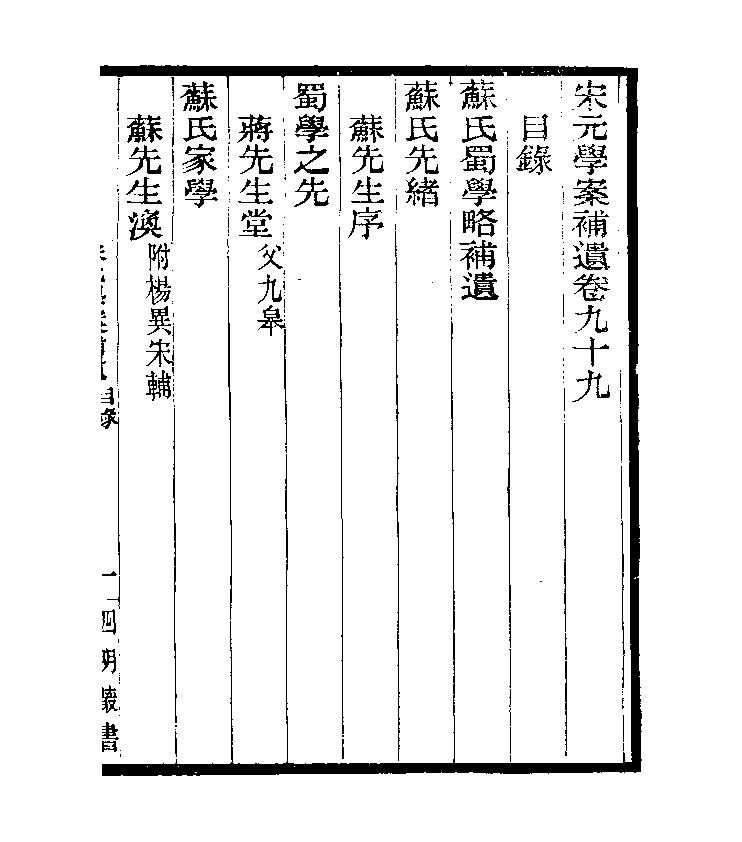 宋元學案補遺卷九十九
目錄
蘇氏蜀學略補遺
蘇氏先緒
蘇先生序
蜀學之先
蔣先生堂 父九皋
蘇氏家學
蘇先生渙 附楊異宋輔
目錄 一 四明叢書